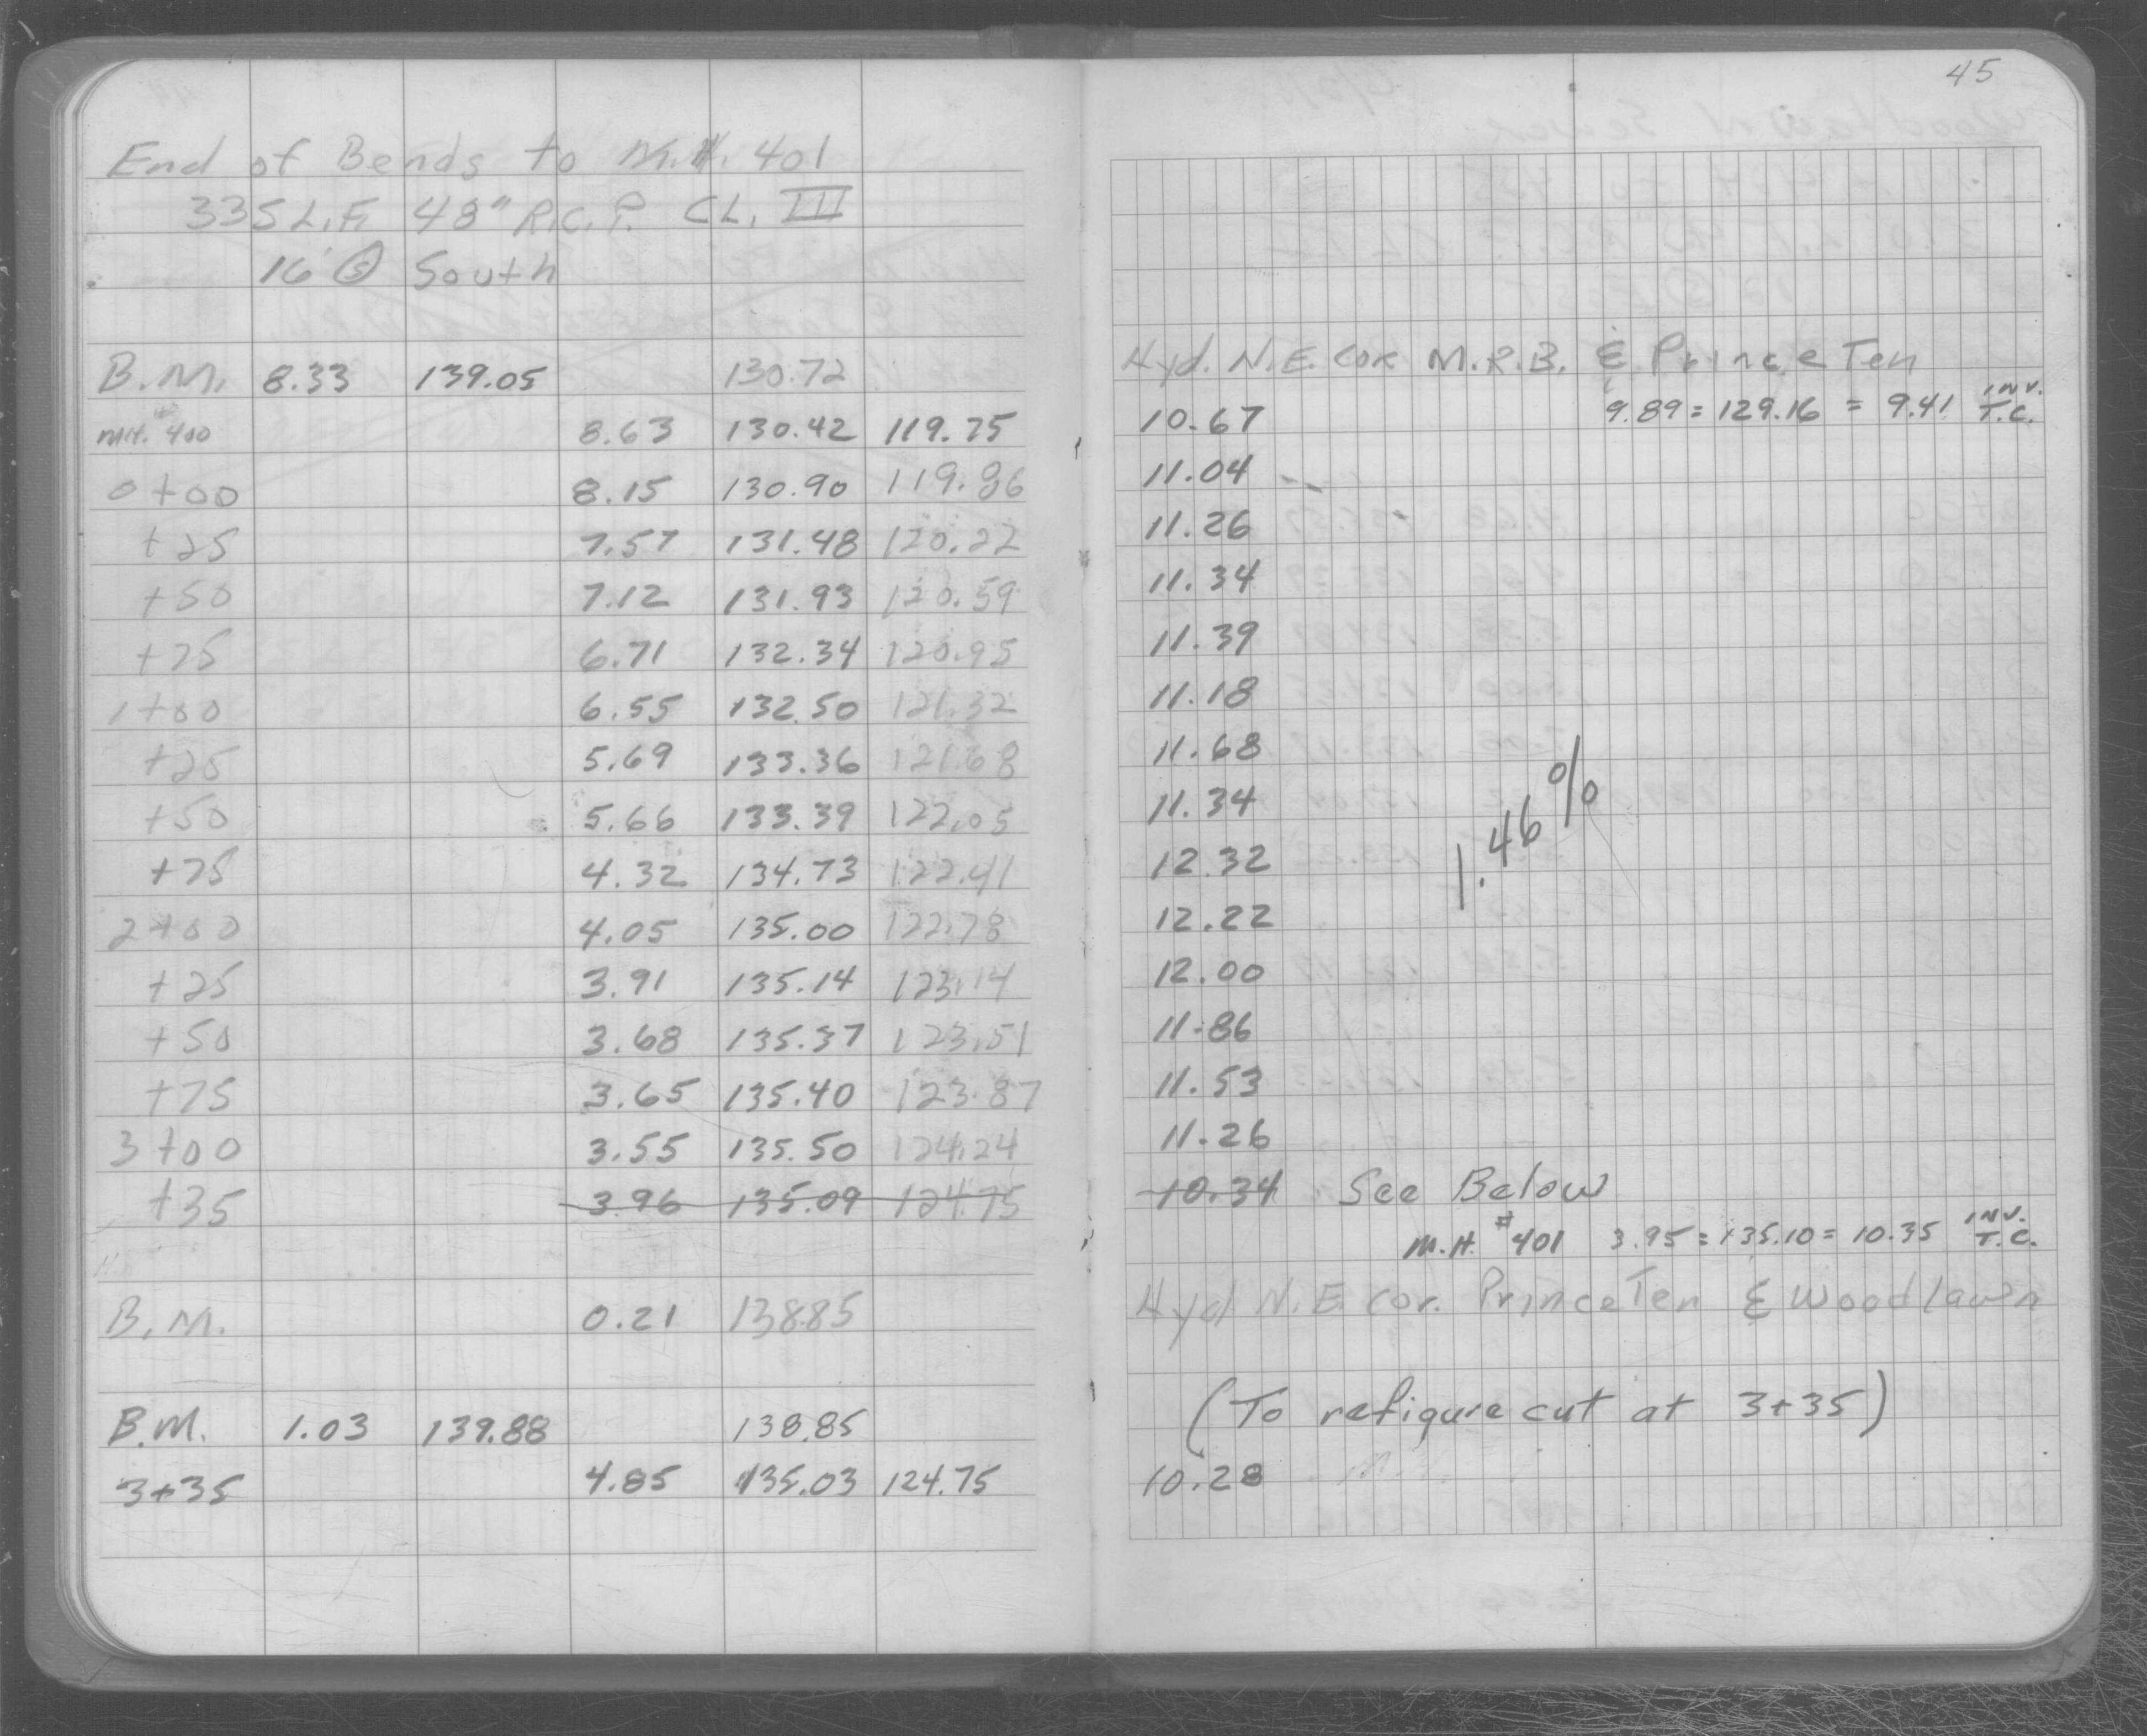 45
End of Bends to M.H. 401
335 L.F. 48" R.C.P. CL. III
16' Ⓢ South
B.M. 8.33 139.05 130.72 Hyd. N.E. Cor M.R.B. & PrinceTen
M.H. 400 8.63 130.42 119.75 10.67 9.89 = 129.16 = 9.41 INV. T.C.
0+00 8.15 130.90 119.86 11.04
+25 7.57 131.48 120.22 11.26
+50 7.12 131.93 120.59 11.34
+75 6.71 132.34 120.95 11.39
1+00 6.55 132.50 121.32 11.18
+25 5.69 133.36 121.68 11.68
+50 5.66 133.39 122.05 11.34
1.46%
+75 4.32 134.73 122.41 12.32
2+00 4.05 135.00 122.78 12.22
+25 3.91 135.14 123.14 12.00
+50 3.68 135.37 123.51 11.86
+75 3.65 135.40 123.87 11.53
3+00 3.55 135.50 124.24 11.26
+35 3.96 135.09 124.75 10.34 See Below
M.H. #401 3.95 = 135.10 = 10.35 INV. T.C.
B.M. 0.21 138.85 Hyd N.E. Cor. PrinceTen & Woodlawn
(To refigure cut at 3+35)
B.M. 1.03 139.88 138.85
3+35 4.85 135.03 124.75 10.28